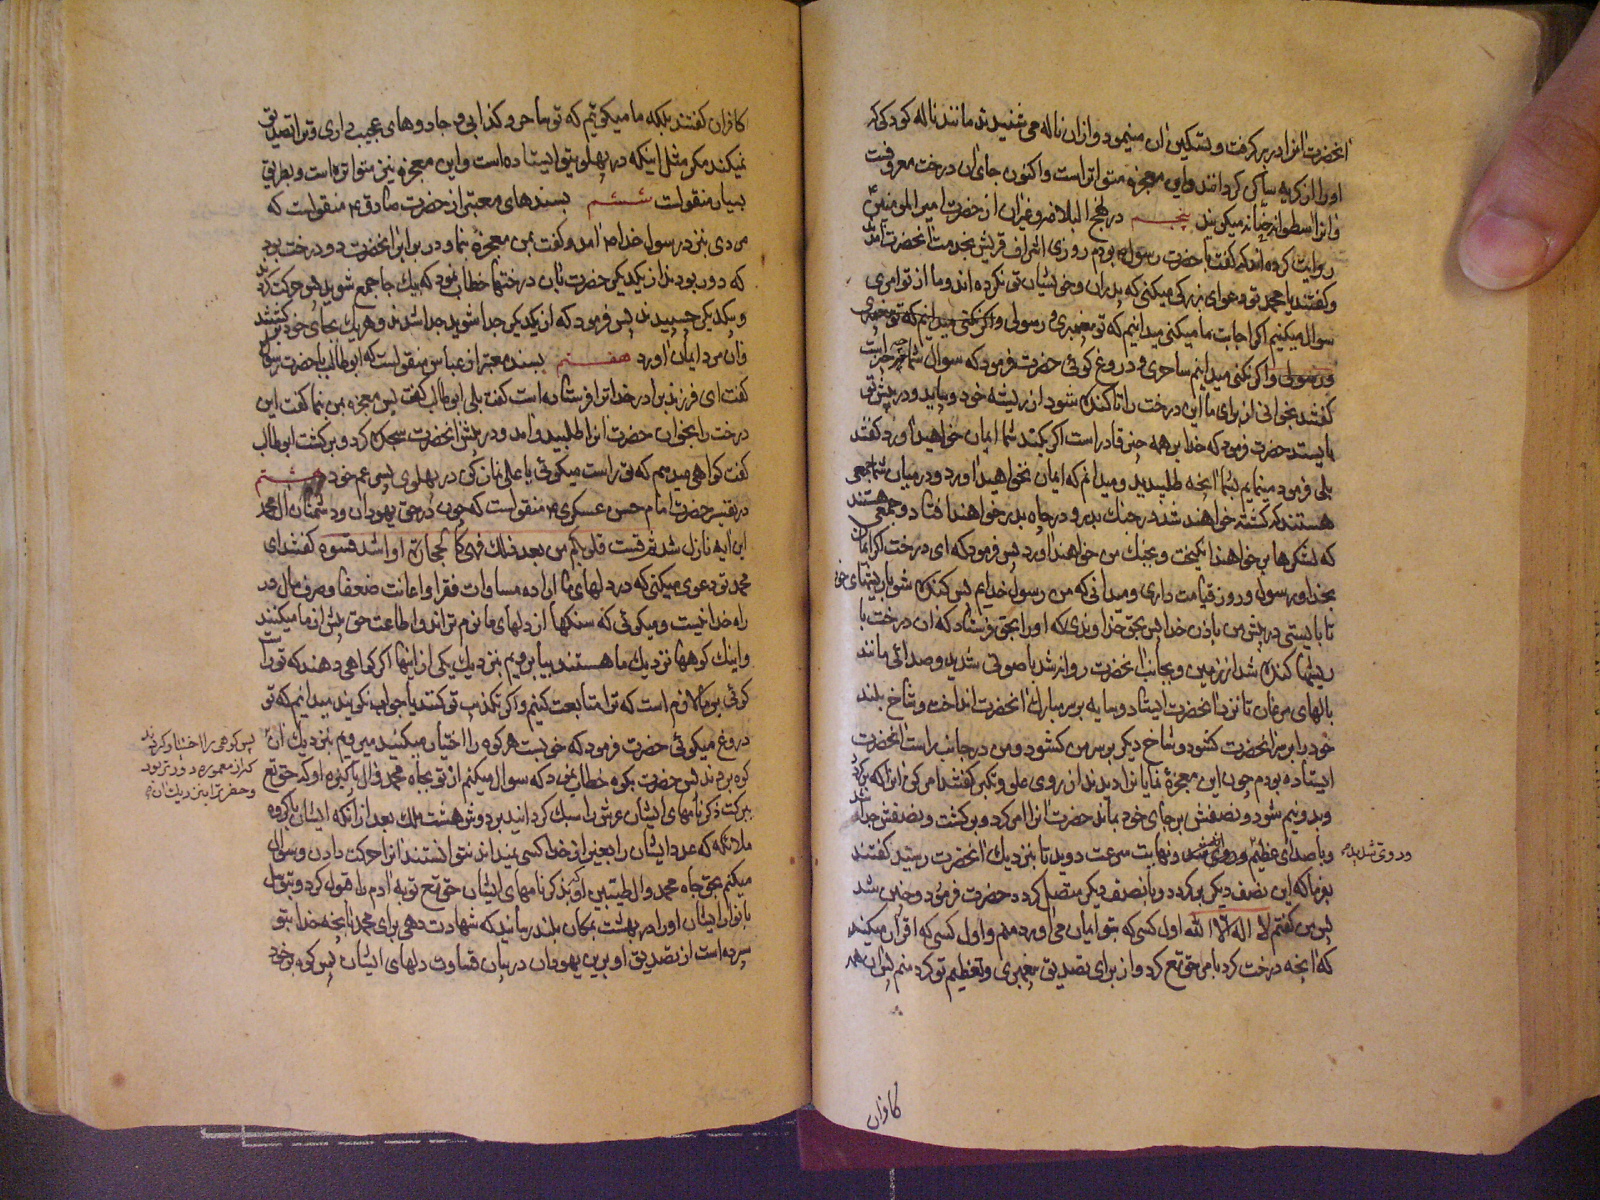 آنحضرت انرا در بر گرفت و تسکین ان مینمود و ازان ناله می شنیدند مانند ناله کودکی که
او را از گریه ساکن گردانند و این معجزه متواتر است و اکنون جای ان درخت معروفست
و انرا اسطوانه حنانه میگویند پنجم در نهج البلاغه و غیر ان از حضرت امیر المؤمنین ع
روایت کرده اند که گفت با حضرت رسول بودم روزی اشراف قریش بخدمت انحضرت امدند
و گفتند یا محمد تو دعوای بزرگی میکنی که پدران و خویشان تو نکرده اند و ما از تو امری
سوال میکنیم اگر اجابت ما میکنی میدانیم که تو پیغمبری و رسولی و اگر نکنی میدانیم که تو پیغمبری
و رسولی و اگر نکنی میدانیم ساحری و دروغ گوئی حضرت فرمود که سوال شما چه چیز است
گفتند بخوانی از برای ما این درخت را تا کنده شود از ریشه خود و بیاید و در پیش تو
بایستد حضرت فرمود که خدا بر همه چیز قادر است اگر بکند شما ایمان خواهید اورد گفتند
بلی فرمود مینمایم بشما انچه طلبیدید و میدانم که ایمان نخواهید اورد و در میان شما جمعی
هستند که کشته خواهند شد در جنك بدر و در چاه بدر خواهند افتاد و جمعی هستند
که لشکرها بر خواهند انگیخت و بجنك من خواهند اورد پس فرمود که ای درخت اگر ایمان
بخدا و رسول و روز قیامت داری و میدانی که من رسول خدایم پس کنده شو با ریشهای خود
تا بایستی در پیش من باذن خدا پس بحق خداوندی که او را بحق فرستاد که ان درخت با
ریشها کنده شد از زمین و بجانب انحضرت روانه شد با صوتی شدید و صدائی مانند
بالهای مرغان تا نزد انحضرت ایستاد و سایه بر سر مبارك انحضرت انداخت و شاخ بلند
خود را بر سر انحضرت گشود و شاخ دیگر بر سر من گشود و من در جانب راست انحضرت
ایستاده بودم چون این معجزه نمایان را دیدند از روی علو و تکبر گفتند امر کن انرا که برگردد
و بدو نیم شود و نصفش بر جای خود بماند حضرت انرا امر کرد و برگشت و نصفش جدا شد
و با صدای عظیم و نهایت سرعت دوید تا بنزدیك انحضرت رسید گفتند
و دوی شدید
بفرما که این نصف دیگر برگردد و با نصف دیگر متصل گردد حضرت فرمود و چنین شد
پس من گفتم لا اله الا الله اول کسی که بتو ایمان می اورد منم و اول کسی که اقرار میکند
که انچه درخت کرد بامر حق تع کرد و از برای تصدیق پیغمبری و تعظیم تو کرد منم پس ان همه
کافران
کافران گفتند بلکه ما میگوئیم که تو ساحر و کذابی و جادوهای عجیب داری و ترا تصدیق
نمیکند مگر مثل اینکه در پهلوی تو ایستاده است و این معجزه نیز متواتره است و بطرق
بسیار منقولست ششم بسندهای معتبر از حضرت صادق ع منقولست که
مردی بنزد رسول خدا ص امد و گفت بمن معجزه بنما و در برابر انحضرت دو درخت بود
که دور بودند از یکدیگر حضرت بان درختها خطاب نمود که بیك جا جمع شوید پس حرکت کردند
و بیکدیگر چسپیدند پس فرمود که از یکدیگر جدا شوید جدا شدند و هر یك بجای خود برگشتند
و ان مرد ایمان اورد هفتم بسند معتبر از عباس منقولست که ابو طالب با حضرت رسول
گفت ای فرزند برادر خدا ترا فرستاده است گفت بلی ابو طالب گفت پس معجزه بمن بنما گفت این
درخت را بخوان حضرت انرا طلبید و امد و در پیش انحضرت سجده کرد و برگشت ابو طالب
گفت گواهی میدهم که تو راست میگوئی یا علی نماز کن در پهلوی پسر عم خود هشتم
در تفسیر حضرت امام حسن عسکری ع منقولست که چون در حق یهودان و دشمنان ال محمد
این ایه نازل شد ثم قست قلوبکم من بعد ذلك فهی کالحجارة او اشد قسوة گفتند ای
محمد تو دعوی میکنی که در دلهای ما اراده مساوات فقرا و اعانت ضعفا و صرف مال در
راه خدا نیست و میگوئی که سنگها از دلهای ما نرم تر اند و اطاعت حق بیش از ما میکنند
و اینك کوهها نزدیك ما هستند بیا برویم بنزدیك یکی از اینها اگر گواهی دهند که تو راست
گوئی بر ما لازم است که ترا متابعت کنیم و اگر تکذیب تو کنند یا جواب نگویند میدانیم که تو
دروغ میگوئی حضرت فرمود که خوبست هر کوه را اختیار میکنید میرویم بنزدیك ان
پس کوهی را اختیار کردند
که از معموره دورتر بود
و حضرترا بنزدیك ان
کوه بردند پس حضرت بکوه خطاب نمود که سوال میکنم از تو بجاه محمد و ال پاکیزه او که حق تع
ببرکت ذکر نامهای ایشان عرش را سبك گردانید بر دوش هشت ملك بعد از انکه ایشان با گروه
ملائکه که عدد ایشان را بغیر از خدا کسی نمیداند نتوانستند انرا حرکت دادن و سوال
میکنم بحق جاه محمد و ال طیبین او که بذکر نامهای ایشان حق تع توبه ادم را قبول کرد و بتوسل
بانوار ایشان ادریس را در بهشت بمکان بلند رسانید که شهادت دهی برای محمد بانچه خدا بتو
سپرده است از تصدیق او برین یهودان در بیان قساوت دلهای ایشان پس کوه بر خود